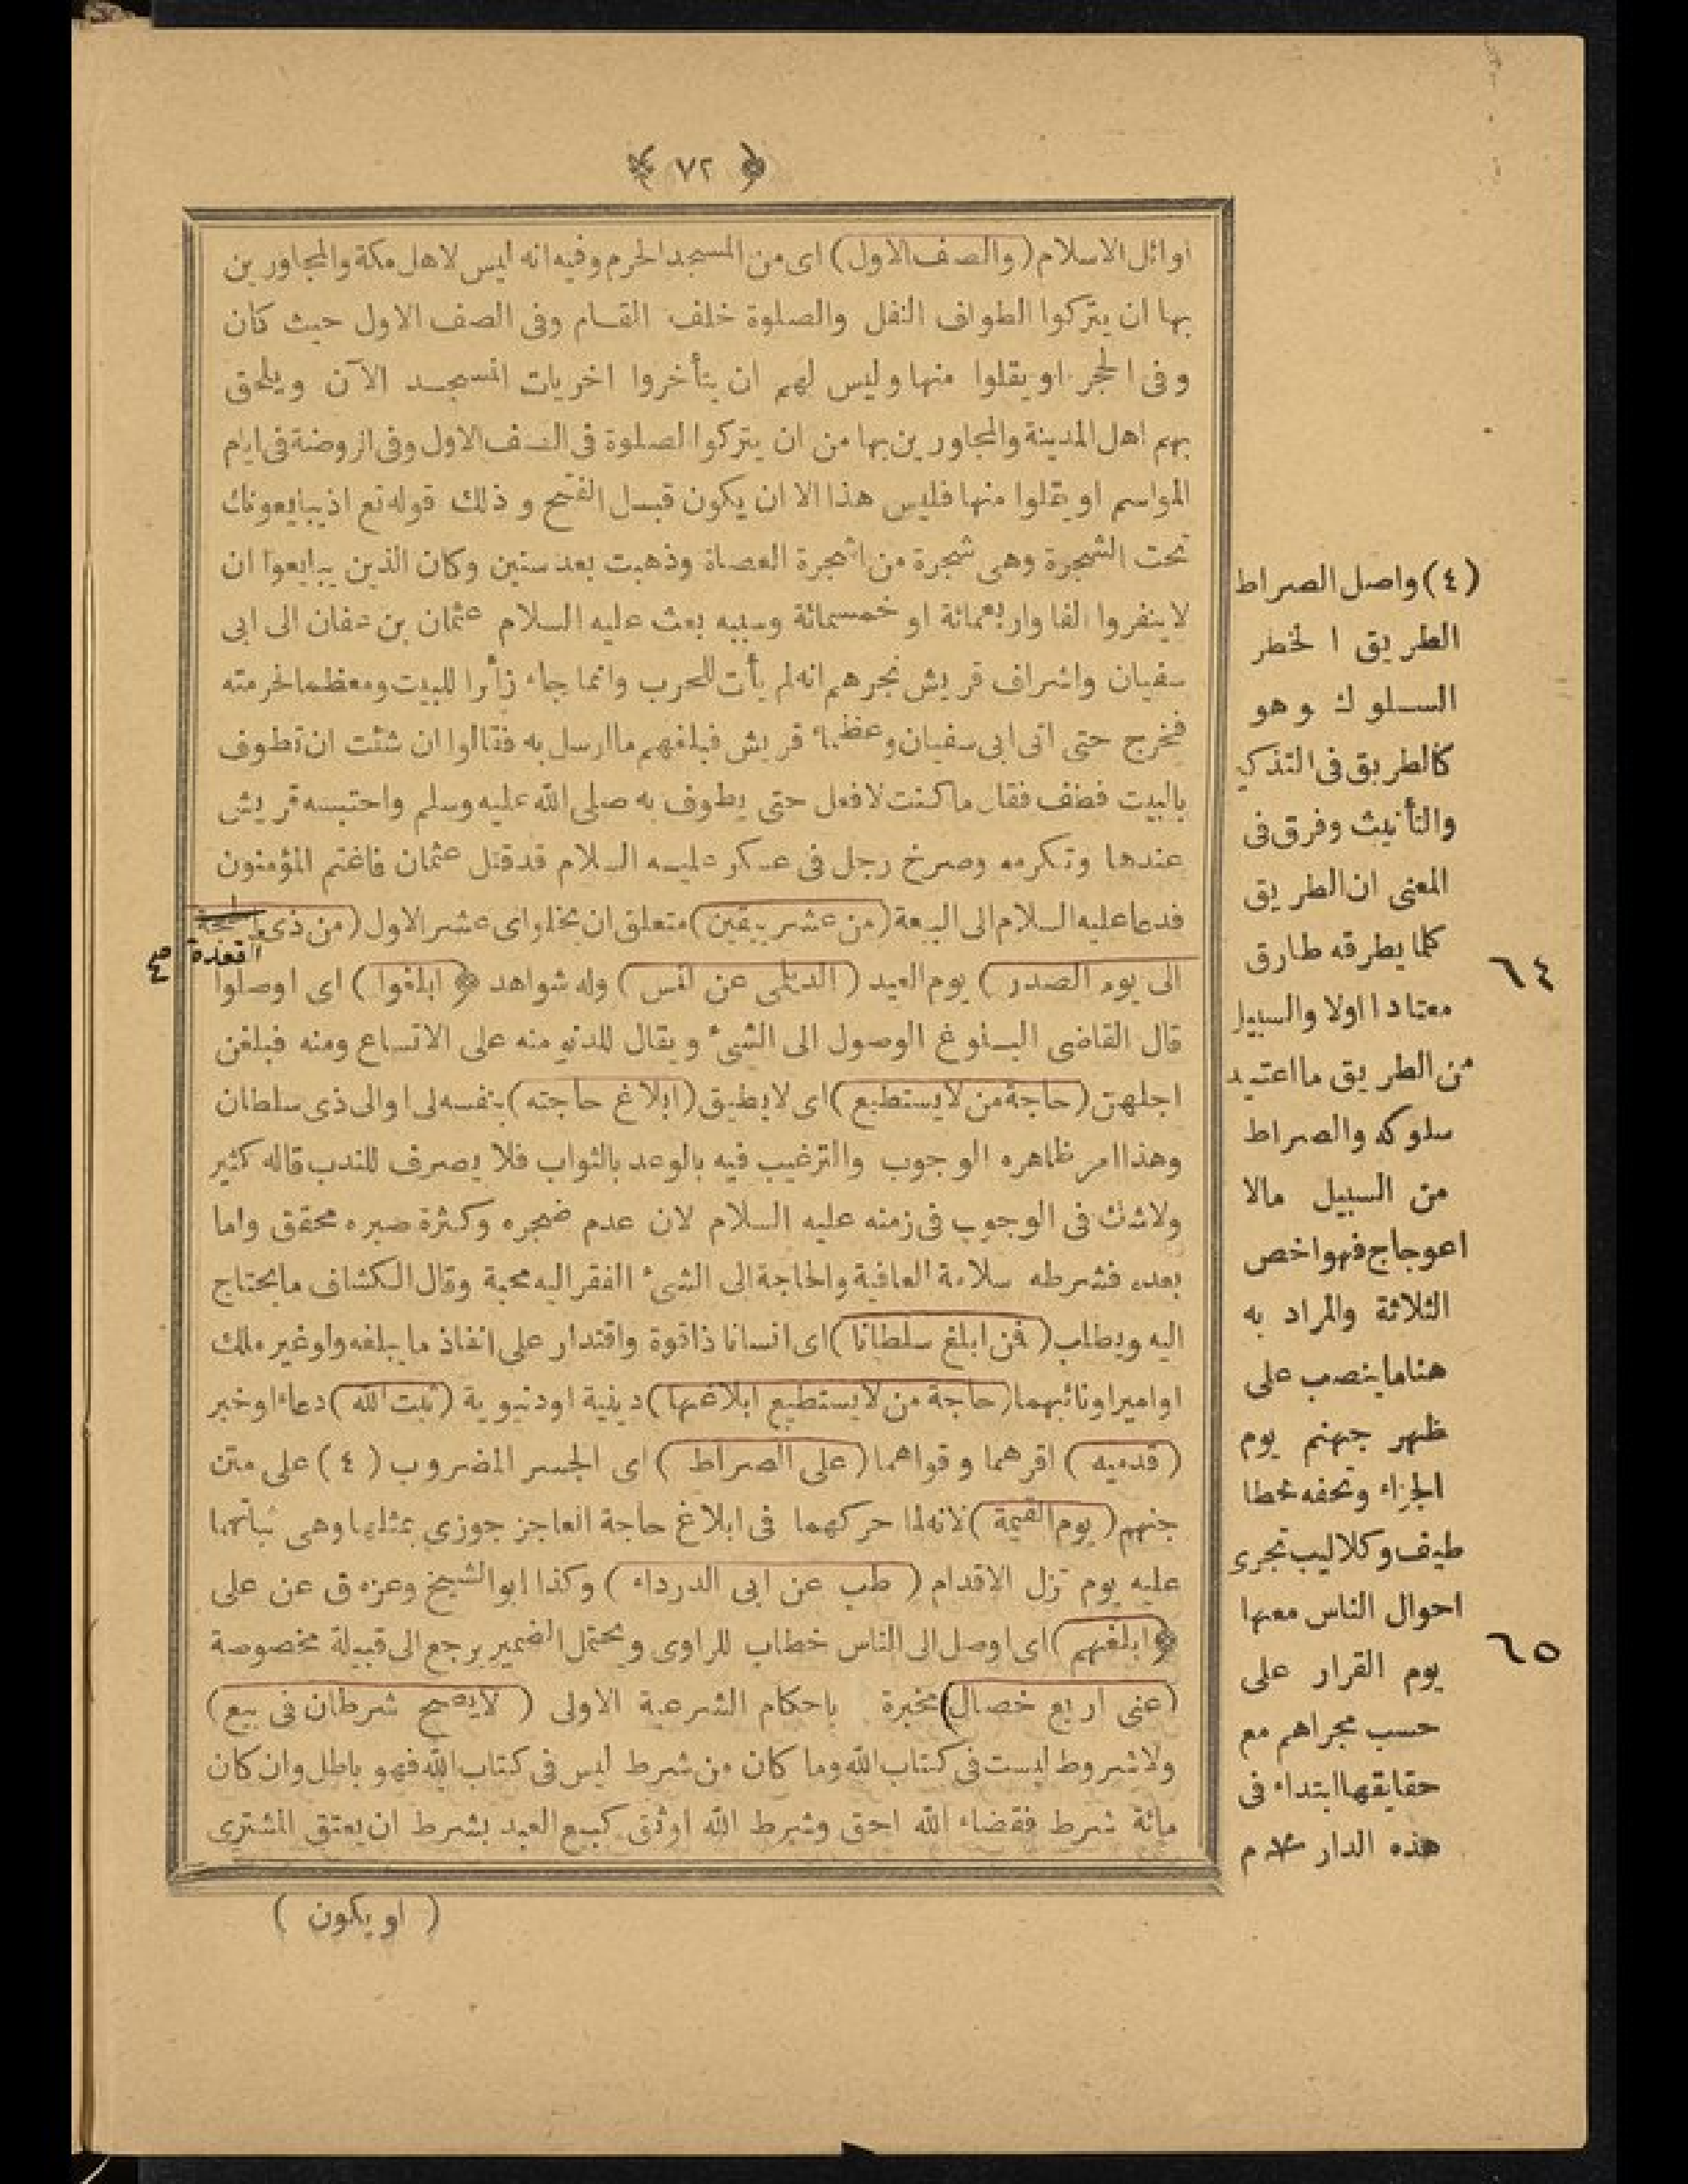 ﴿ ٧٢ ﴾
اوائل الاسلام (والصف الاول) اى من المسجد الحرم وفيه انه ليس لاهل مكة والمجاورين
بها ان يتركوا الطواف النفل والصلوة خلف القام وفى الصف الاول حيث كان
وفى الحجر او يقلوا منها وليس لهم ان يتأخروا اخريات المسجد الآن ويلحق
بهم اهل المدينة والمجاورين بها من ان يتركوا الصلوة فى الصف الاول وفى الروضة فى ايام
المواسم او يقلوا منها فليس هذا الا ان يكون قبل الفتح وذلك قوله تع اذ يبايعونك
تحت الشجرة وهى شجرة من اشجرة العصاة وذهبت بعد سنين وكان الذين يبايعوا ان
لاينفروا الفا واربعمائة او خمسمائة وسببه بعث عليه السلام عثمان بن عفان الى ابى
سفيان واشراف قريش نجرهم انه لم يأت للحرب وانما جاء زائرا للبيت ومعظما لحرمته
فخرج حتى اتى ابى سفيان وعظماء قريش فبلغهم ما ارسل به فقالوا ان شئت ان تطوف
بالبيت فطف فقال ما كنت لافعل حتى يطوف به صلى الله عليه وسلم واحتبسه قريش
عندها وتكرمه وصرخ رجل فى عسكر عليه السلام قد قتل عثمان فاغتم المؤمنون
فدعا عليه السلام الى البيعة (من عشر يبقين) متعلق ان يخلو اى عشر الاول (من ذى الحجة
القعدة صح
الى يوم الصدر) يوم العيد (الديلمى عن انس) وله شواهد ﴿ ابلغوا) اى اوصلوا
قال القاضى البلوغ الوصول الى الشئ ويقال للدنو منه على الاتساع ومنه فبلغن
اجلهن (حاجة من لايستطيع) اى لايطيق (ابلاغ حاجته) بنفسه لى او الى ذى سلطان
وهذا امر ظاهره الوجوب والترغيب فيه بالوعد بالثواب فلا يصرف للندب قاله كثير
ولاشك فى الوجوب فى زمنه عليه السلام لان عدم ضجره وكثرة صبره محقق واما
بعده فشرطه سلامة العافية والحاجة الى الشئ الفقر اليه محبة وقال الكشاف مايحتاج
اليه ويطلب (فمن ابلغ سلطانا) اى انسانا ذاقوة واقتدار على انفاذ ما يبلغه ولو غير ملك
او امير او نائبهما (حاجة من لايستطيع ابلاغها) دينية او دنيوية (ثبت الله) دعاء او خبر
(قدميه) اقرهما وقواهما (على الصراط) اى الجسر المضروب (٤) على متن
جهنم (يوم القيمة) لانه لما حركهما فى ابلاغ حاجة العاجز جوزى بمثلها وهى ثباتهما
عليه يوم تزل الاقدام (طب عن ابى الدرداء) وكذا ابوالشيخ وعزه ق عن على
﴿ ابلغهم) اى اوصل الى الناس خطاب للراوى ويحتمل الضمير يرجع الى قبيلة مخصوصة
(عنى اربع خصال) مخبرة باحكام الشرعية الاولى (لايصح شرطان فى بيع)
ولاشروط ليست فى كتاب الله وما كان من شرط ليس فى كتاب الله فهو باطل وان كان
مائة شرط فقضاء الله احق وشرط الله اوثق كبيع العبد بشرط ان يعتق المشترى
(او يكون)
(٤) واصل الصراط
الطريق الخطر
السلوك وهو
كالطريق فى التذكير
والتأنيث وفرق فى
المعنى ان الطريق
كلما يطرقه طارق
معتادا اولا والسبيل
من الطريق ما اعتيد
سلوكه والصراط
من السبيل مالا
اعوجاج فهو اخص
الثلاثة والمراد به
هنا ما ينصب على
ظهر جهنم يوم
الجزاء وتحفه خطا
طيف وكلاليب تجرى
احوال الناس معها
يوم القرار على
حسب مجراهم مع
حقايقها ابتداء فى
هذه الدار م
٦٤
٦٥